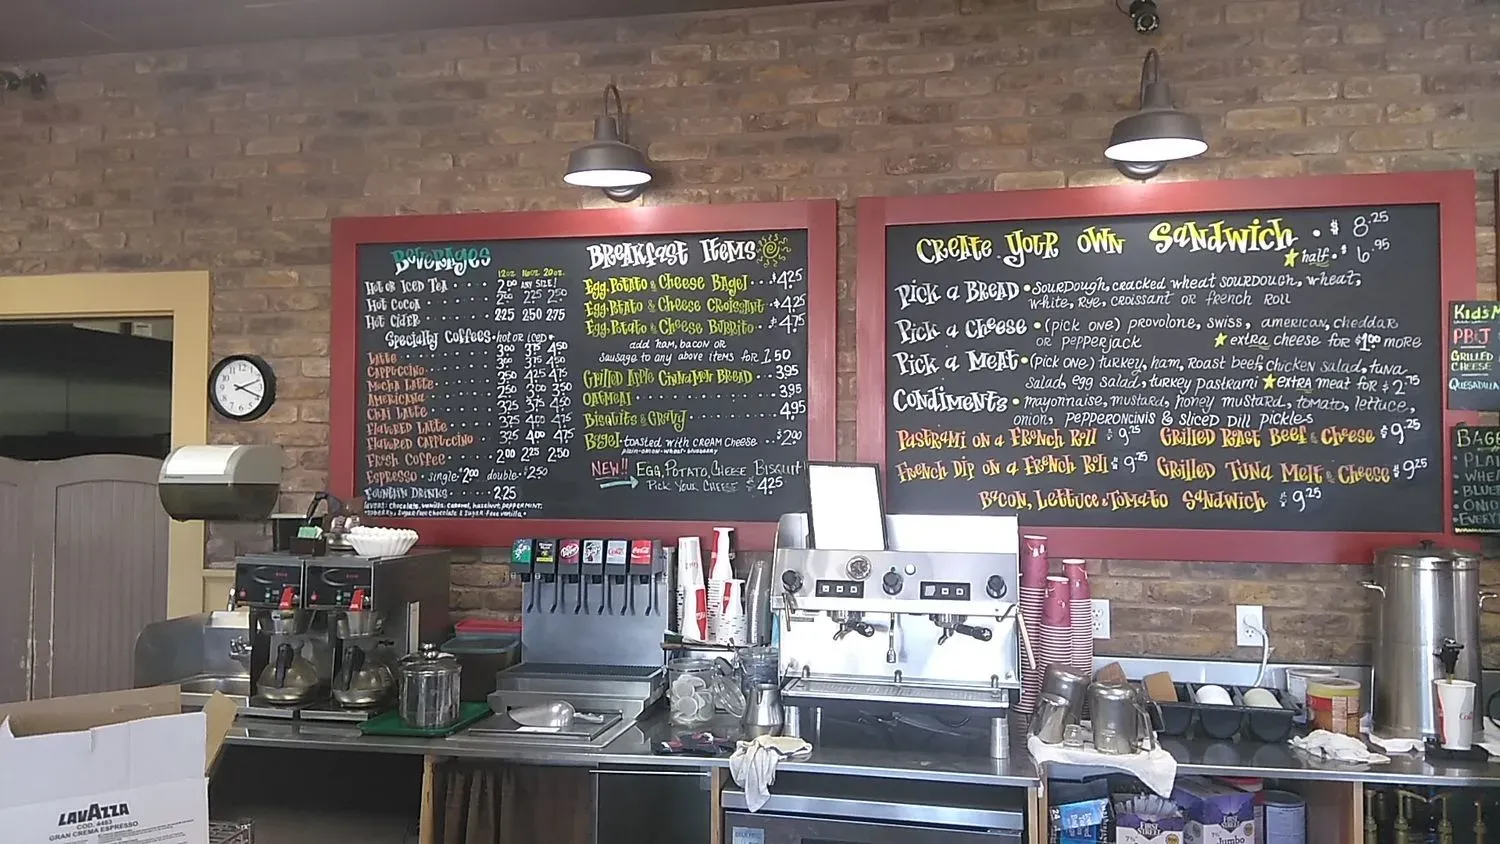 Beverages
12oz. 16oz. 20oz.
Hot or Iced Tea 2.00 ANY SIZE!
Hot Cocoa 2.00 2.25 2.50
Hot Cider 2.25 2.50 2.75
Specialty Coffees • hot or iced •
Latte 3.00 3.75 4.50
Cappuccino
Mocha Latte
Americana
Chai Latte
Flavored Latte
Flavored Cappuccino 3.25 4.00 4.75
Fresh Coffee 2.00 2.25 2.50
Espresso • single • $2.00 double • $2.50
Fountain Drinks 2.25
Chocolate, vanilla, caramel, hazelnut, peppermint,
Sugar Free Chocolate & Sugar Free vanilla •
Breakfast Items
Egg, Potato & Cheese Bagel $4.25
Egg, Potato & Cheese Croissant $4.25
Egg, Potato & Cheese Burrito $4.75
add ham, bacon or
sausage to any above items for 1.50
Grilled Apple Cinnamon Bread 3.95
Oatmeal 3.95
Bisquits & Gravy 4.95
Bagel • toasted with cream cheese $2.00
plain • onion • wheat • blueberry
NEW!! Egg, Potato, Cheese Bisquit
Pick Your Cheese $4.25
Create Your Own Sandwich • $8.25
half • $6.95
Pick a Bread • sourdough, cracked wheat sourdough, wheat,
white, rye, croissant or french roll
Pick a Cheese • (pick one) provolone, swiss, american, cheddar
or pepperjack extra cheese for $1.00 more
Pick a Meat • (pick one) turkey, ham, roast beef, chicken salad, tuna
salad, egg salad, turkey pastrami extra meat for $2.75
Condiments • mayonnaise, mustard, honey mustard, tomato, lettuce,
onion, pepperoncinis & sliced dill pickles
Pastrami on a French Roll $9.25 Grilled Roast Beef & Cheese $9.25
French Dip on a French Roll $9.25 Grilled Tuna Melt & Cheese $9.25
Bacon, Lettuce & Tomato Sandwich $9.25
Kids M
PB&J
Grilled
Cheese
Quesadilla
Bage
• Plai
• Whea
• Blue
• Onio
• Every
LAVAZZA
COD. 4483
GRAN CREMA ESPRESSO
FIRST STREET
FIRST STREET
Jumbo